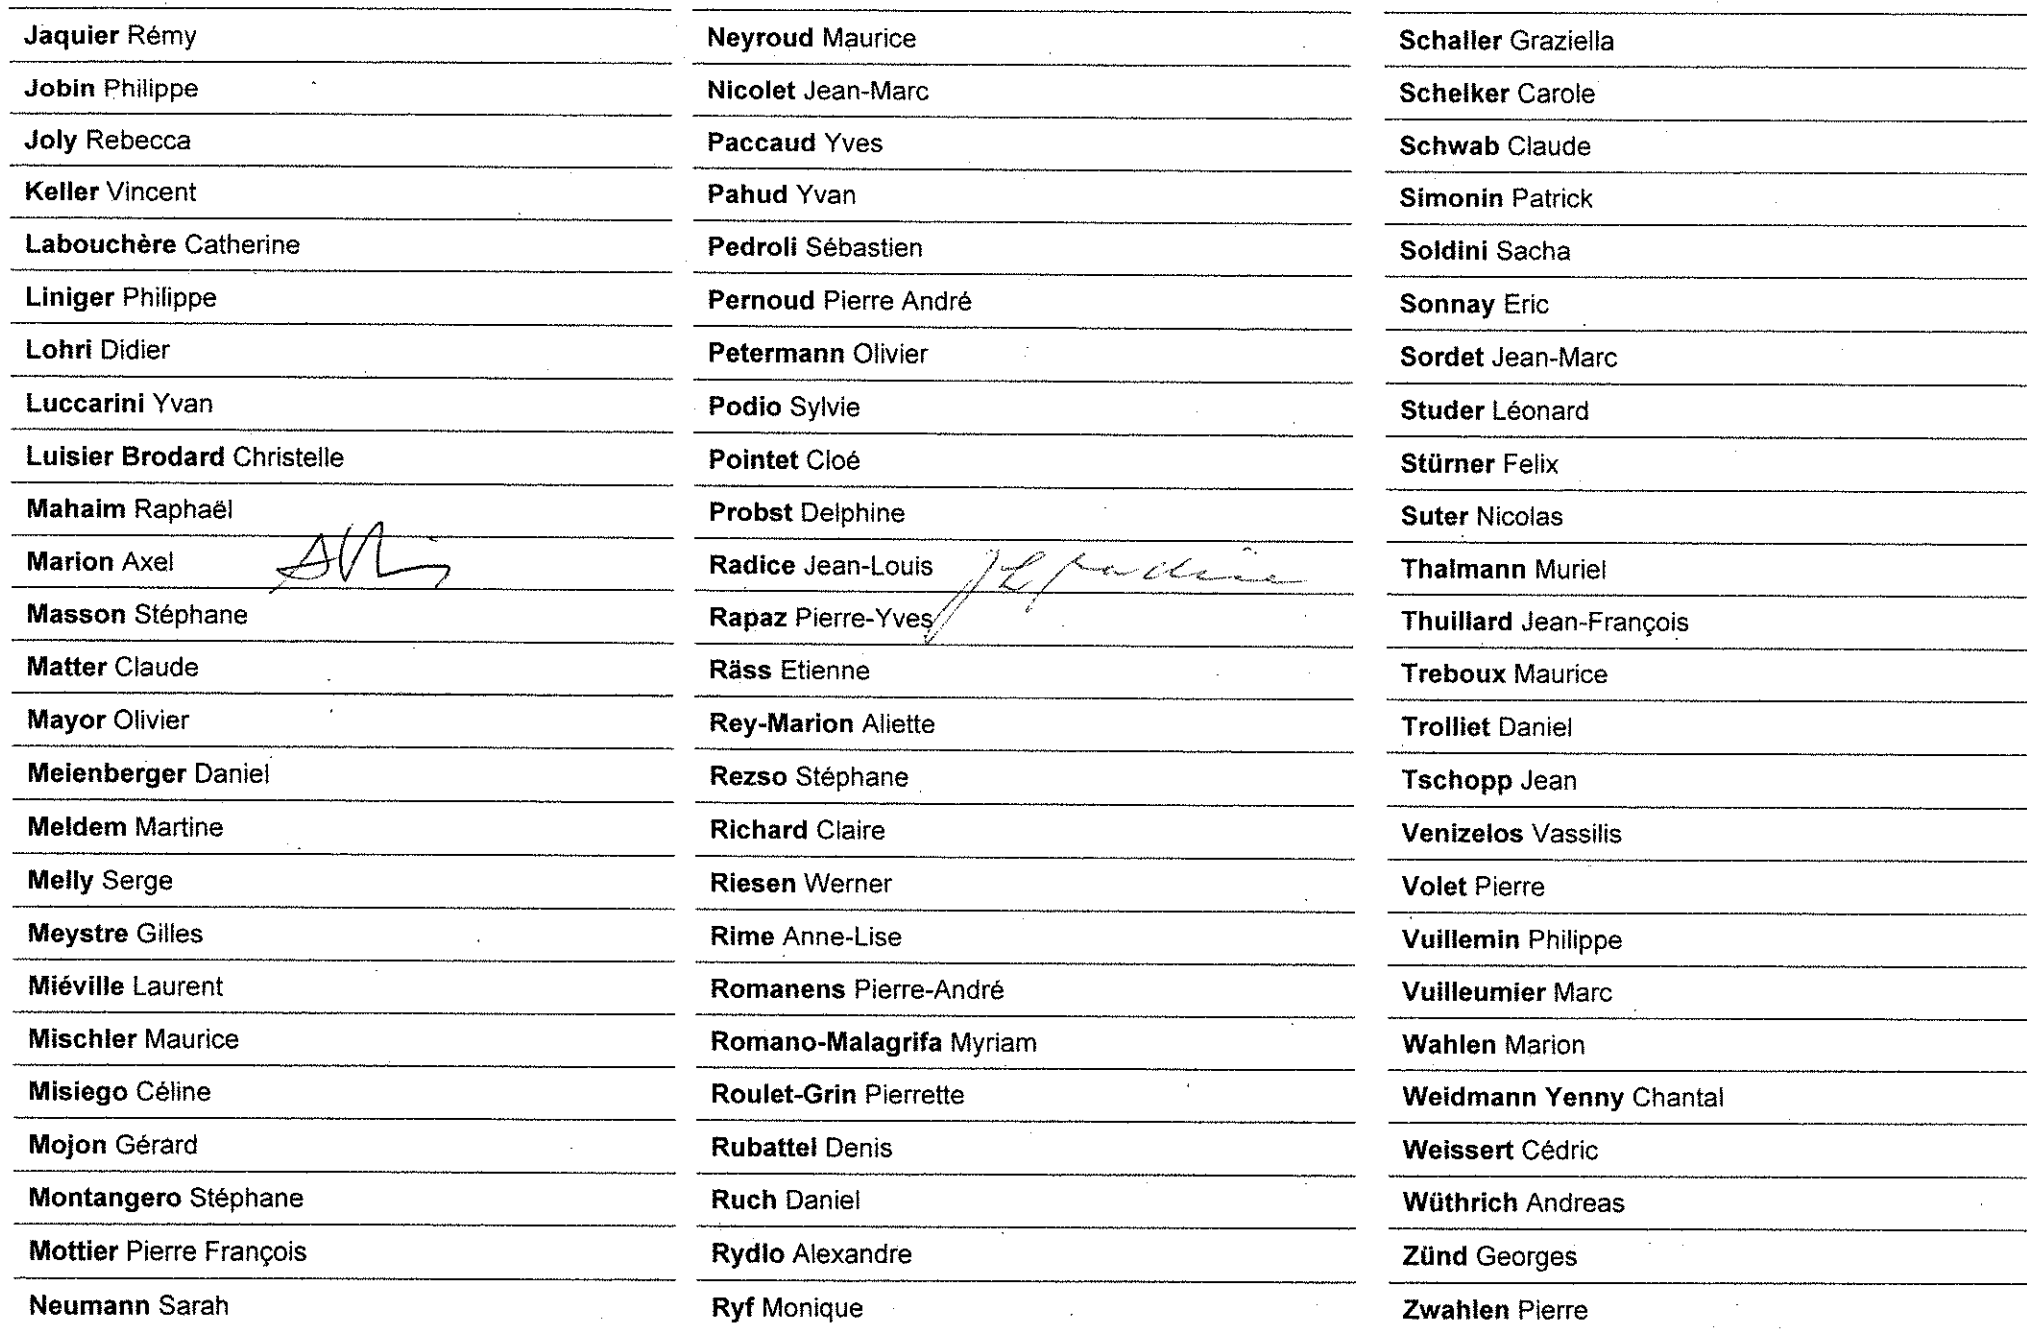 Jaquier Rémy
Jobin Philippe
Joly Rebecca
Keller Vincent
Labouchère Catherine
Liniger Philippe
Lohri Didier
Luccarini Yvan
Luisier Brodard Christelle
Mahaim Raphaël
Marion Axel
Masson Stéphane
Matter Claude
Mayor Olivier
Meienberger Daniel
Meldem Martine
Melly Serge
Meystre Gilles
Miéville Laurent
Mischler Maurice
Misiego Céline
Mojon Gérard
Montangero Stéphane
Mottier Pierre François
Neumann Sarah
Neyroud Maurice
Nicolet Jean-Marc
Paccaud Yves
Pahud Yvan
Pedroli Sébastien
Pernoud Pierre André
Petermann Olivier
Podio Sylvie
Pointet Cloé
Probst Delphine
Radice Jean-Louis JLRadice
Rapaz Pierre-Yves
Räss Etienne
Rey-Marion Aliette
Rezso Stéphane
Richard Claire
Riesen Werner
Rime Anne-Lise
Romanens Pierre-André
Romano-Malagrifa Myriam
Roulet-Grin Pierrette
Rubattel Denis
Ruch Daniel
Rydlo Alexandre
Ryf Monique
Schaller Graziella
Schelker Carole
Schwab Claude
Simonin Patrick
Soldini Sacha
Sonnay Eric
Sordet Jean-Marc
Studer Léonard
Stürner Felix
Suter Nicolas
Thalmann Muriel
Thuillard Jean-François
Treboux Maurice
Trolliet Daniel
Tschopp Jean
Venizelos Vassilis
Volet Pierre
Vuillemin Philippe
Vuilleumier Marc
Wahlen Marion
Weidmann Yenny Chantal
Weissert Cédric
Wüthrich Andreas
Zünd Georges
Zwahlen Pierre